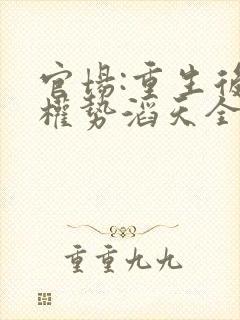 官場:重生後
權勢滔天全
重重九九